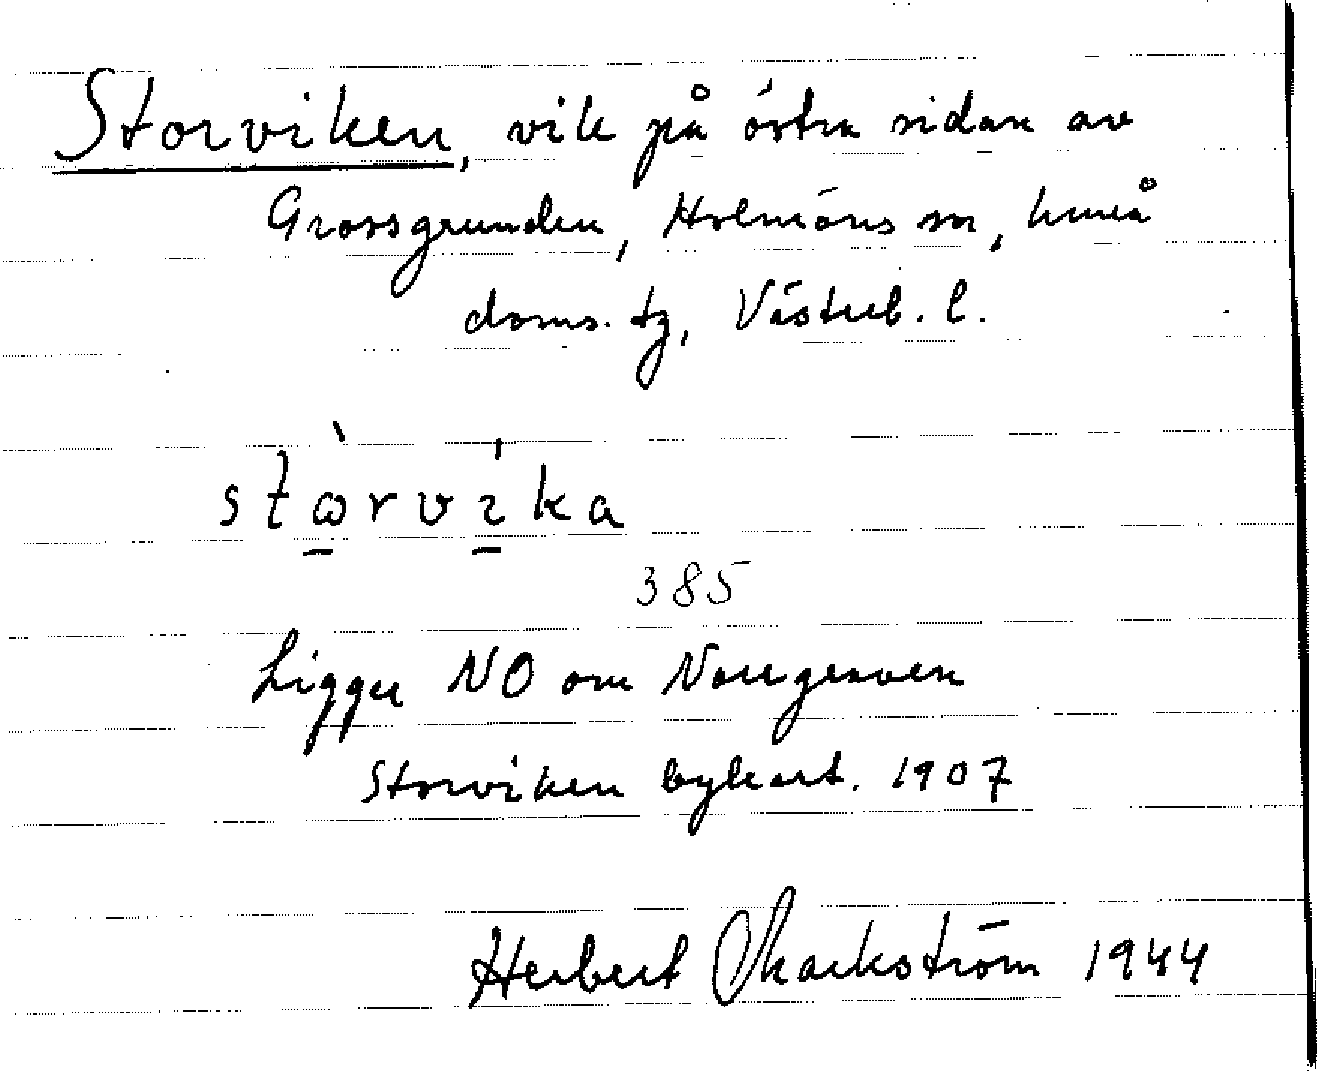 Storviken, vik på östra sidan av
Grossgrunden, Holmöns sn, Umeå
doms. tg, Västerb. l.
stòrvíka
385
Ligger NO om Norrgraven
Storviken bykart. 1907
Herbert Skarkström 1944